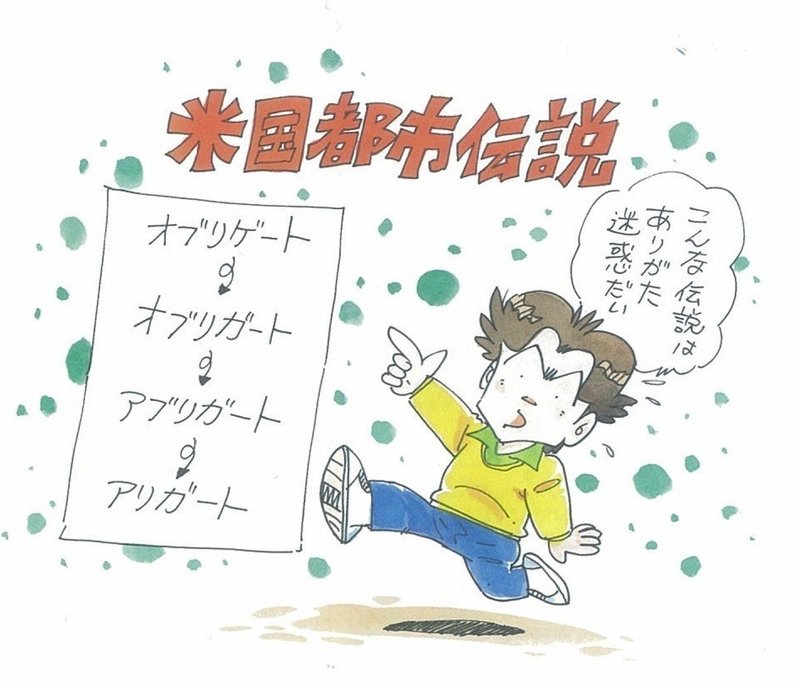 米国都市伝説
オブリゲート
オブリガート
アブリガート
アリガート
こんな伝説は
ありがた
迷惑だい